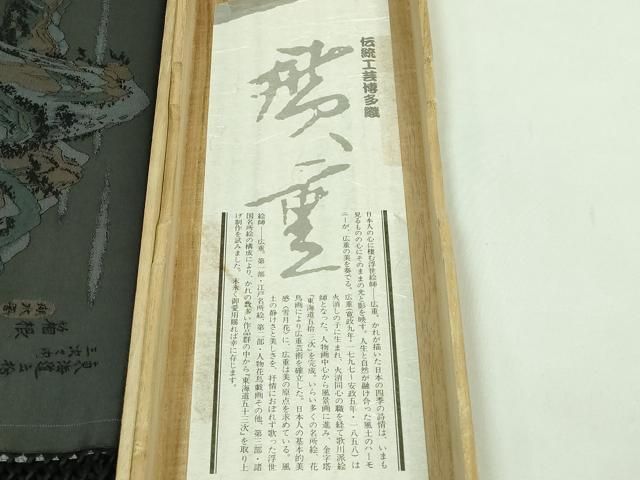 伝統工芸博多織
廣重
日本人の心に棲む浮世絵師――広重。かれが描いた日本の四季の詩情は、いまも
見るものの心にそのままの光と影を映す。人生と自然が融け合った風土のハーモ
ニーが、広重の美を奏でる。広重(寛政九年・一七九七〜安政五年・一八五八)は
火消しの子に生まれ、火消同心の職を経て歌川派絵
師となった。人物画中心から風景画に進み、金字塔
「東海道五拾三次」を完成。いらい多くの名所絵、花
鳥画により広重芸術を確立した。日本人の基本的美
感(雪月花)に、広重は美の原点を求めている。風
土の静けさと美しさを、抒情におぼれず歌った浮世
絵師――広重。第一部・江戸名所絵、第二部・人物花鳥戯画その他、第三部・諸
国名所絵の構成により、かれの数多い作品群の中から『東海道五十三次』を取り上
げ制作を試みました。末永く御愛用賜れば幸に存じます。
東海道五拾
三次之内
箱根